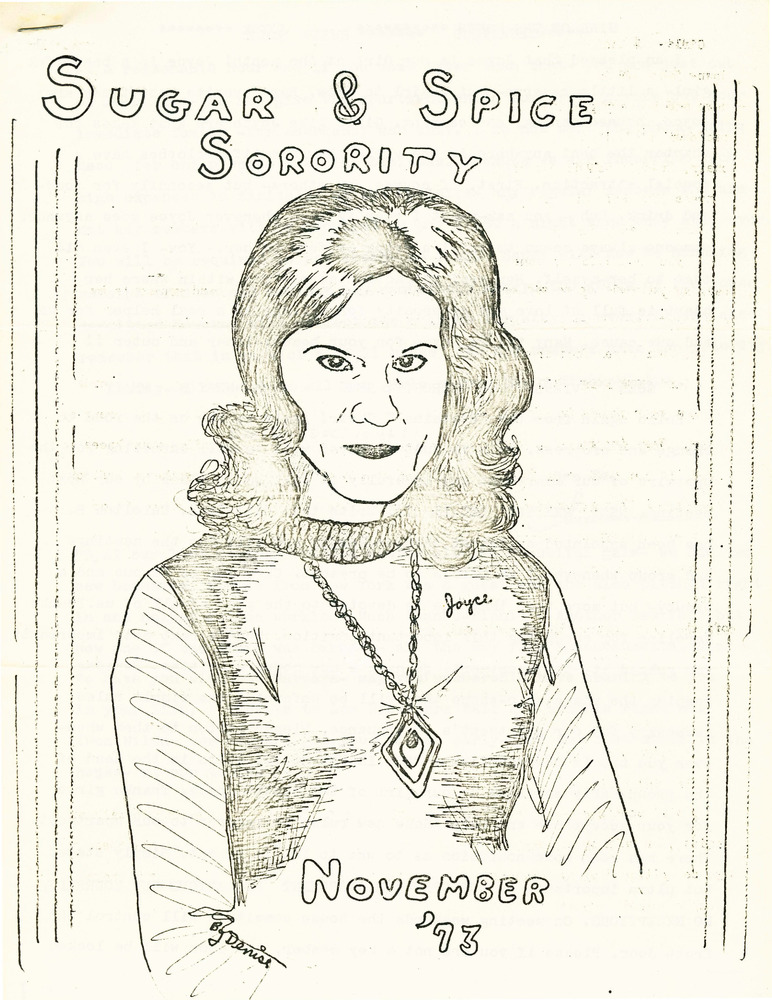 SUGAR & SPICE
SORORITY
Joyce
NOVEMBER
'73
By Denise